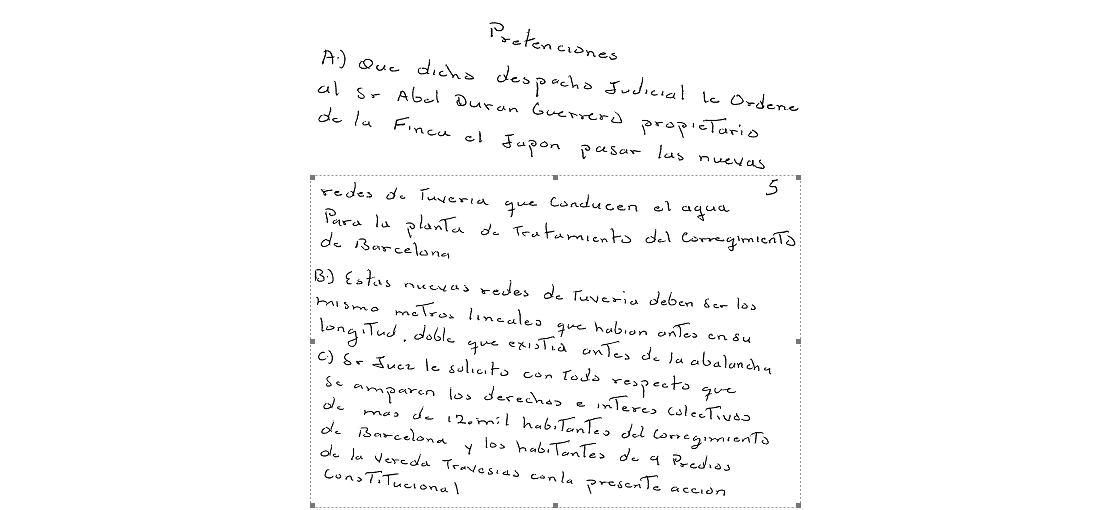 Pretenciones
A.) Que dicho despacho Judicial le Ordene
al Sr Abel Duran Guerrero propietario
de la Finca el Japon pasar las nuevas
5
redes de Tuveria que conducen el agua
Para la planta de Tratamiento del Corregimiento
de Barcelona
B.) Estas nuevas redes de Tuveria deben ser los
mismo metros lineales que habian antes en su
longitud, doble que existia antes de la abalancha
C) Sr Juez le solicito con Todo respecto que
se amparen los derechos e interes colectivos
de mas de 12.mil habitantes del Corregimiento
de Barcelona y los habitantes de 9 Predios
de la Vereda Travesias con la presente accion
Constitucional